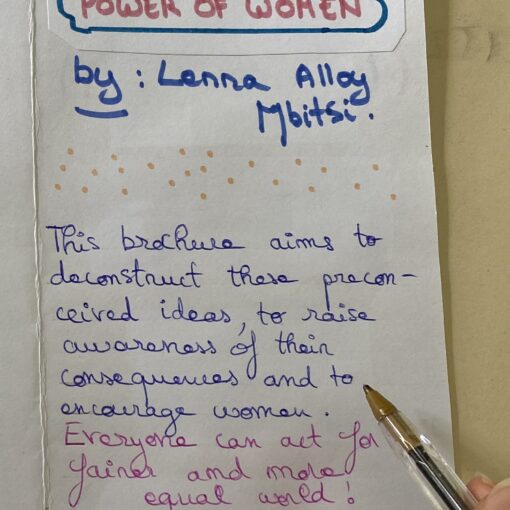 POWER OF WOMEN
by : Lenna Alloy
Mbitsi.
This brochure aims to
deconstruct these precon-
ceived ideas, to raise
awareness of their
consequences and to
encourage women.
Everyone can act for
fairer and more
equal world !